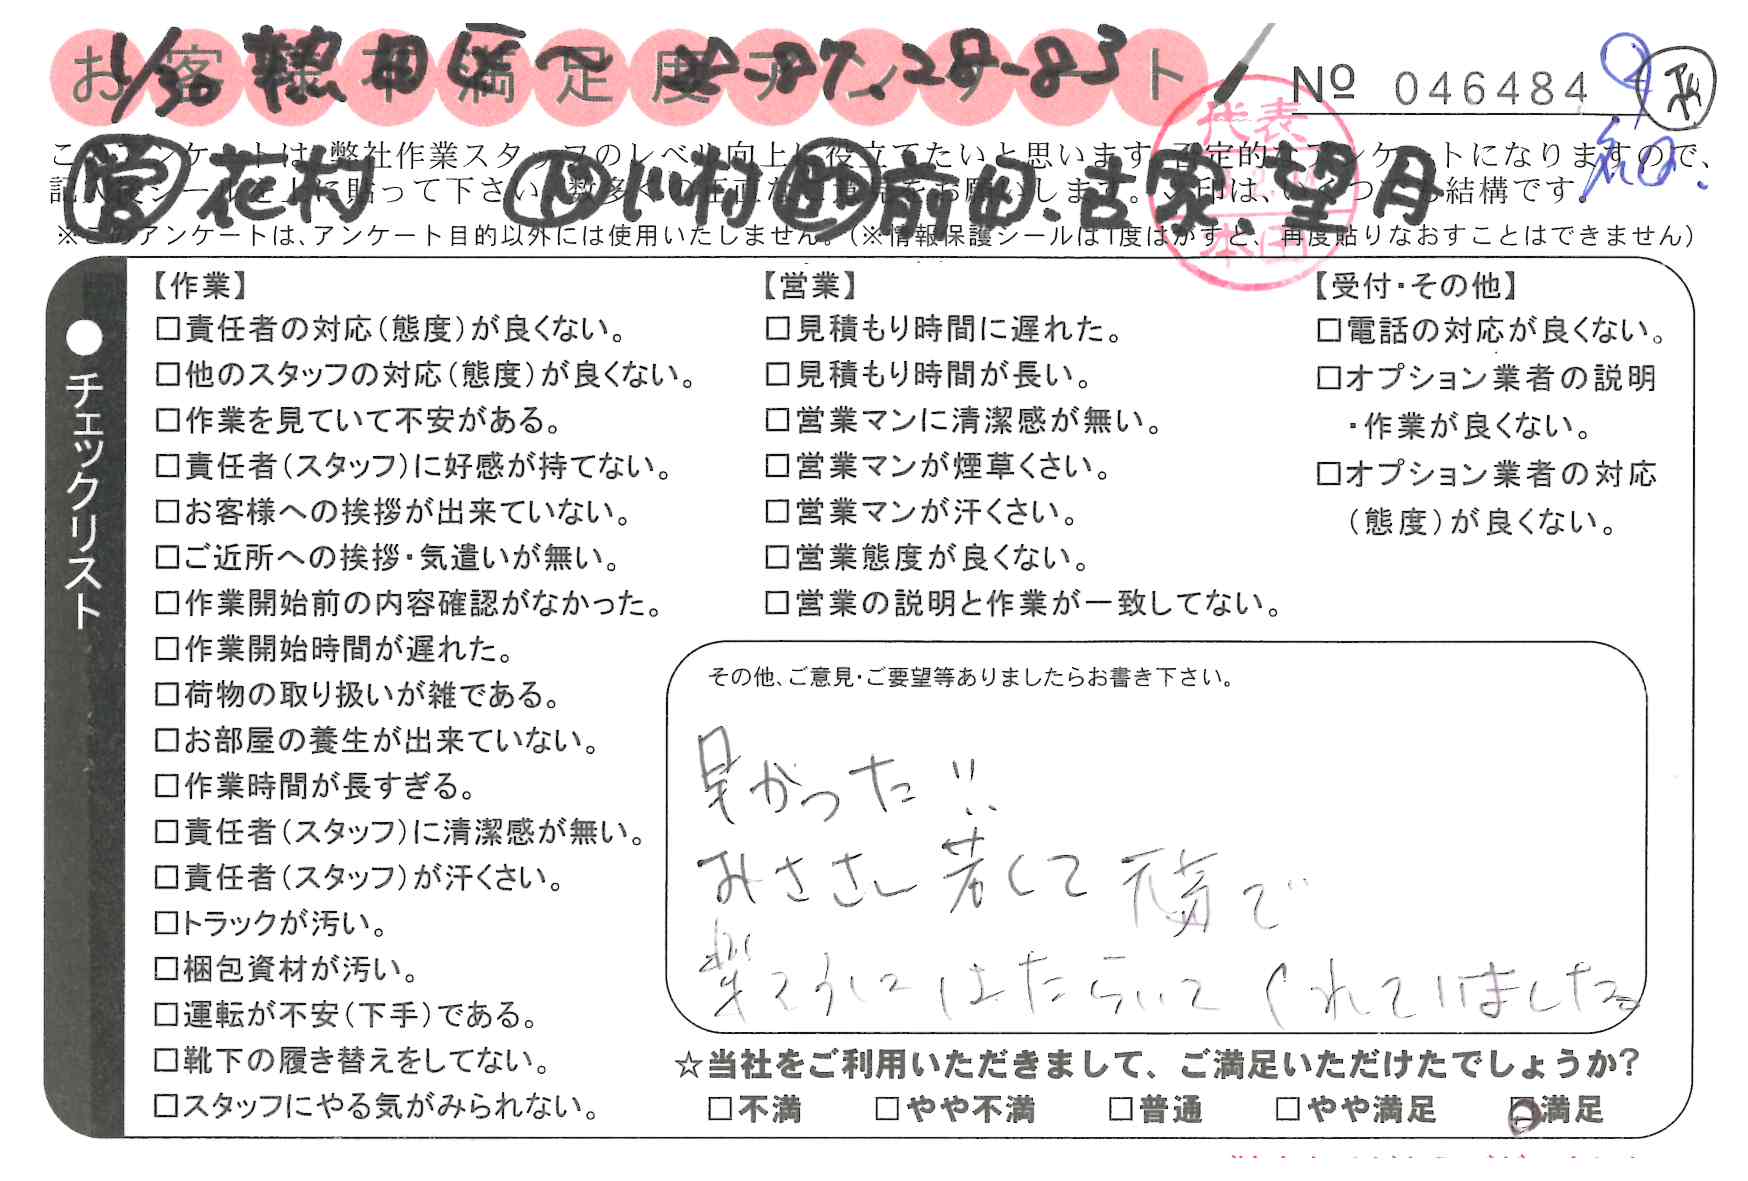 お客様 満足度アンケート
1/30
87.28-83
Nº 046484
代表
本田
営 花村 ド 川村 助 前田、古家、望月
※このアンケートは、アンケート目的以外には使用いたしません。(※情報保護シールは1度はがすと、再度貼りなおすことはできません)
●チェックリスト
【作業】
□責任者の対応(態度)が良くない。
□他のスタッフの対応(態度)が良くない。
□作業を見ていて不安がある。
□責任者(スタッフ)に好感が持てない。
□お客様への挨拶が出来ていない。
□ご近所への挨拶・気遣いが無い。
□作業開始前の内容確認がなかった。
□作業開始時間が遅れた。
□荷物の取り扱いが雑である。
□お部屋の養生が出来ていない。
□作業時間が長すぎる。
□責任者(スタッフ)に清潔感が無い。
□責任者(スタッフ)が汗くさい。
□トラックが汚い。
□梱包資材が汚い。
□運転が不安(下手)である。
□靴下の履き替えをしてない。
□スタッフにやる気がみられない。
【営業】
□見積もり時間に遅れた。
□見積もり時間が長い。
□営業マンに清潔感が無い。
□営業マンが煙草くさい。
□営業マンが汗くさい。
□営業態度が良くない。
□営業の説明と作業が一致してない。
【受付・その他】
□電話の対応が良くない。
□オプション業者の説明
・作業が良くない。
□オプション業者の対応
(態度)が良くない。
その他、ご意見・ご要望等ありましたらお書き下さい。
早かった!!
みなさん若くて 素敵で
楽しそうに はたらいて くれていました
☆当社をご利用いただきまして、ご満足いただけたでしょうか?
□不満 □やや不満 □普通 □やや満足 □満足